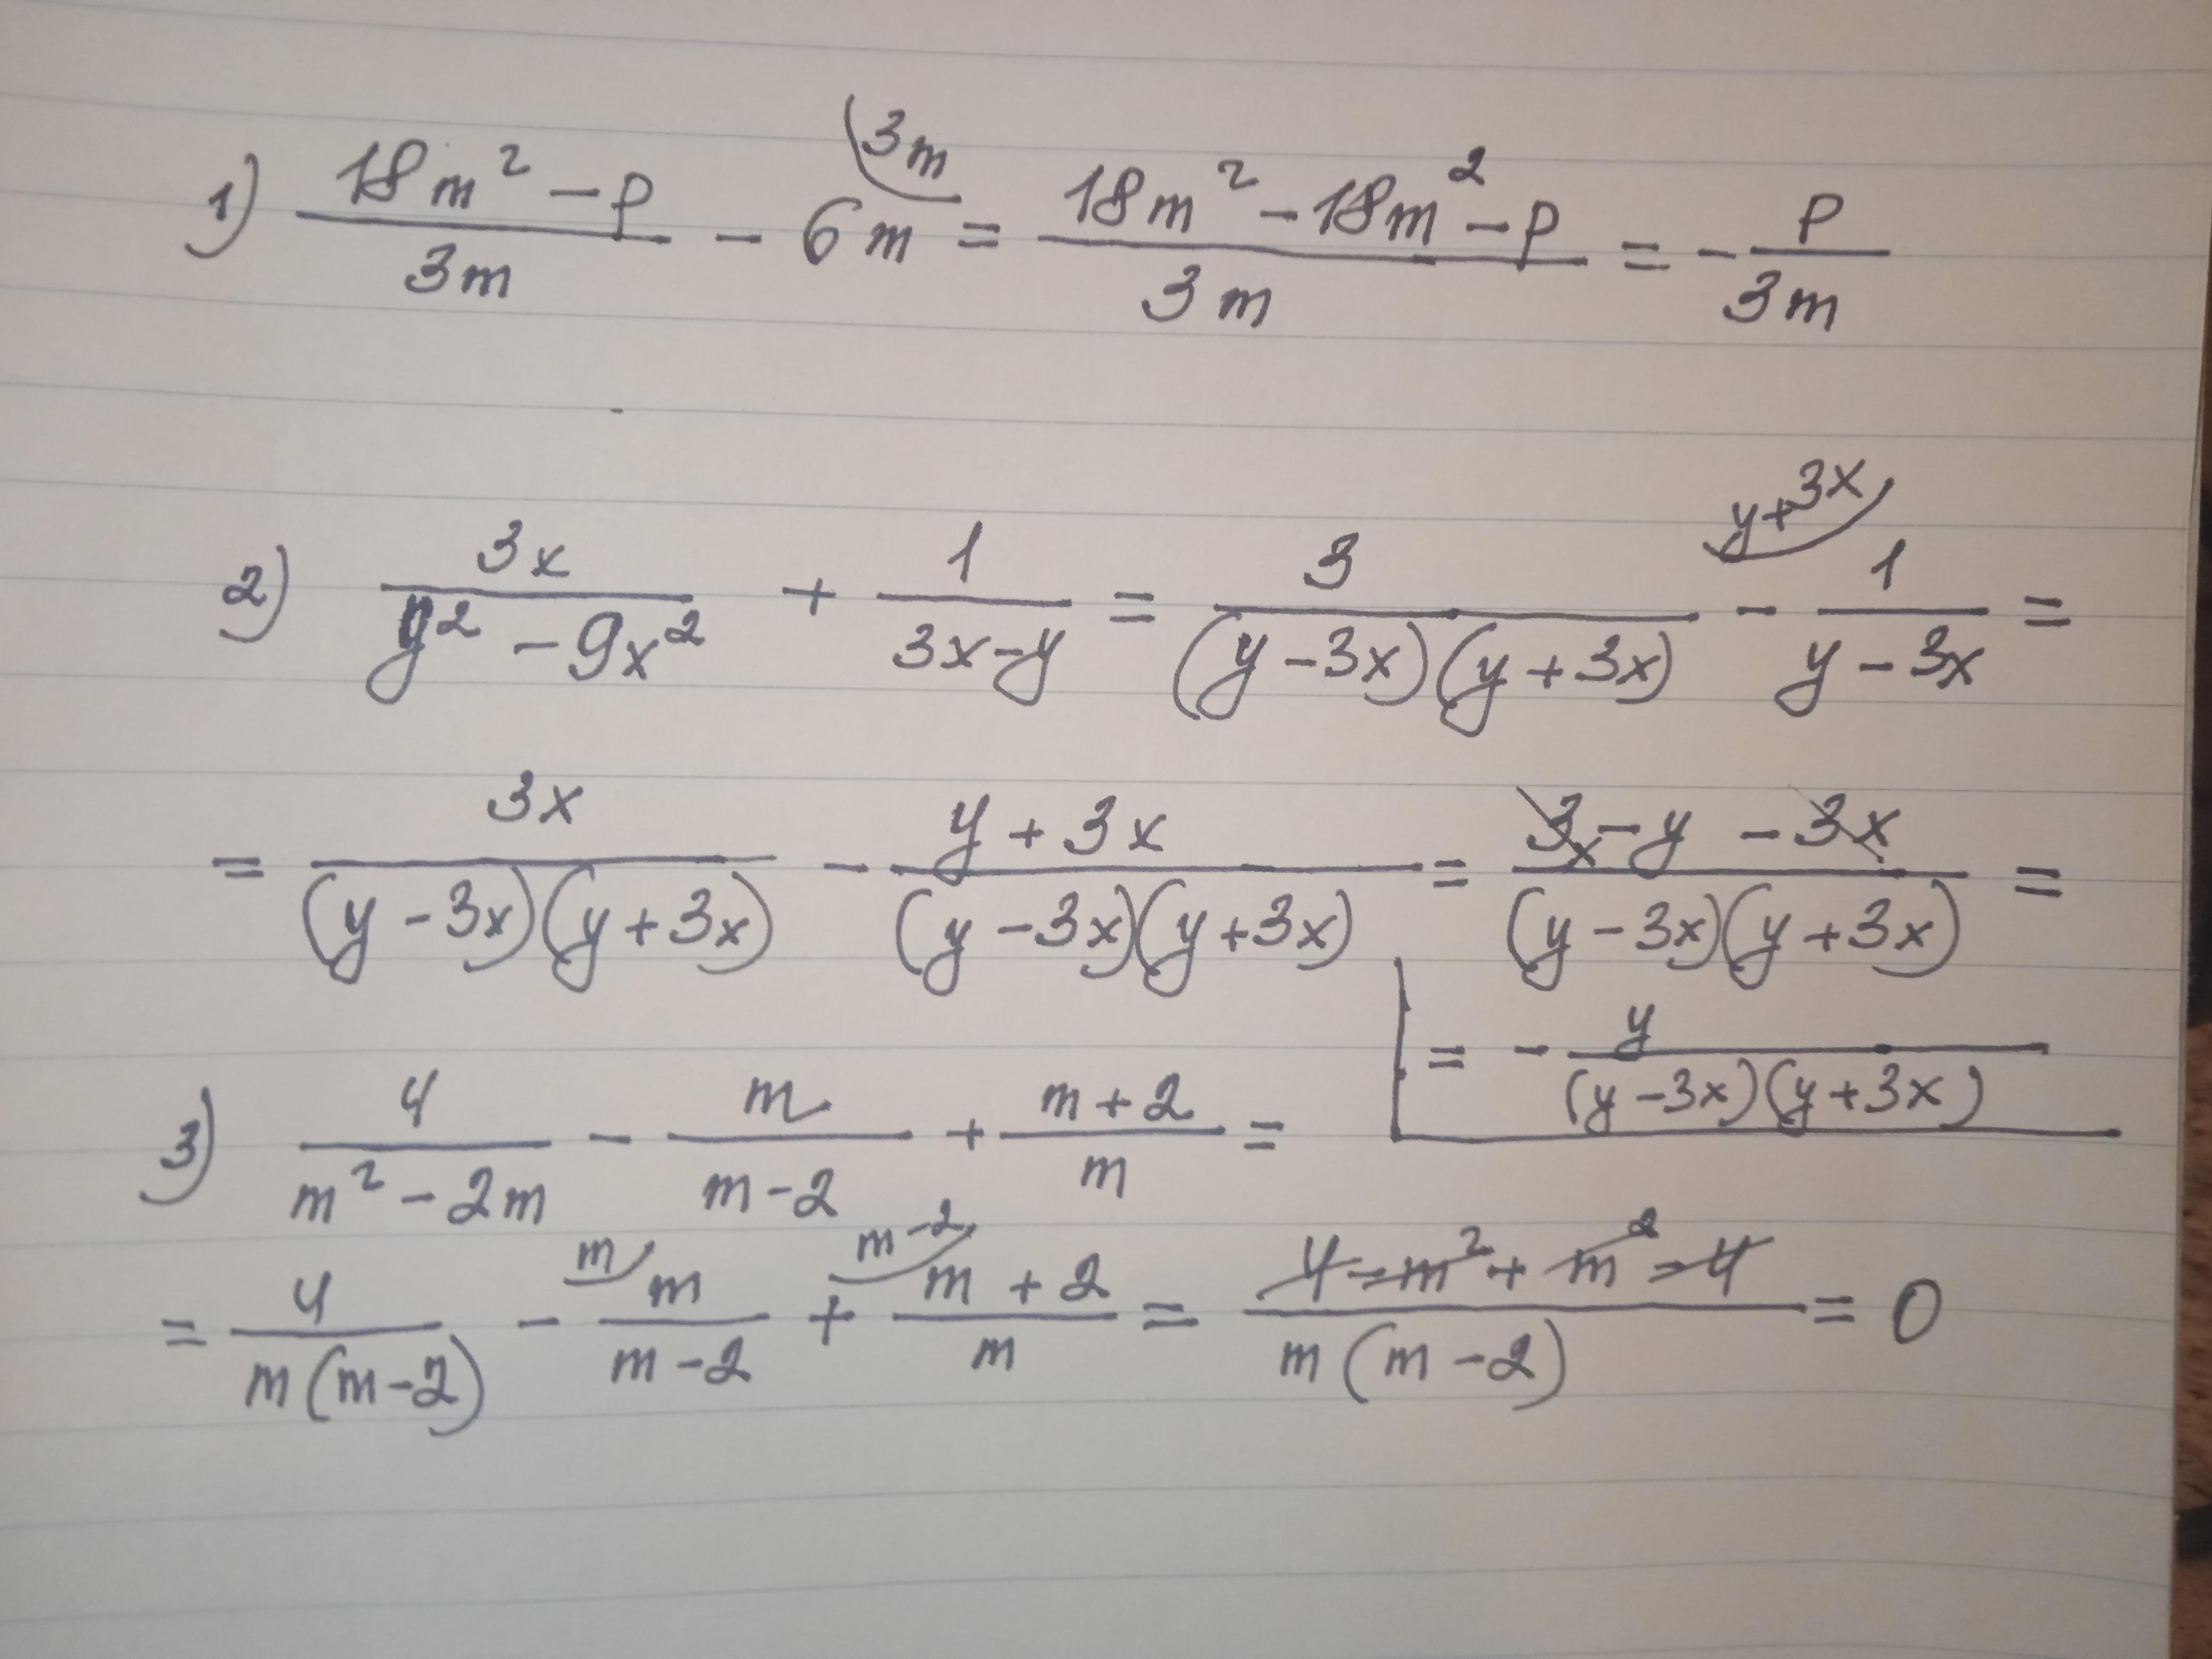 1) (18m² - p)/(3m) - 6m^(3m = (18m² - 18m² - p)/(3m) = - p/(3m)
2) 3x/(y² - 9x²) + 1/(3x - y) = 3/((y - 3x)(y + 3x)) - ^(y + 3x) 1/(y - 3x) =
= 3x/((y - 3x)(y + 3x)) - (y + 3x)/((y - 3x)(y + 3x)) = (3x - y - 3x)/((y - 3x)(y + 3x)) =
= - y/((y - 3x)(y + 3x))
3) 4/(m² - 2m) - m/(m - 2) + (m + 2)/m =
= 4/(m(m - 2)) - ^(m) m/(m - 2) + ^(m - 2) (m + 2)/m = (4 - m² + m² - 4)/(m(m - 2)) = 0